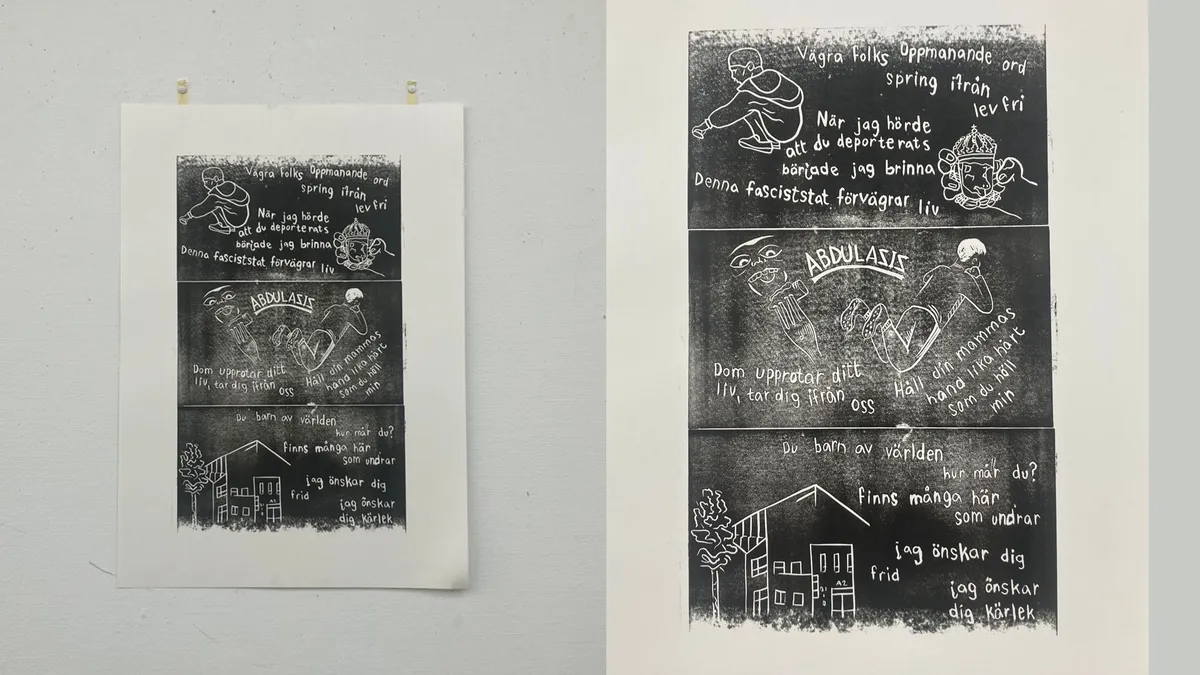 Vägra folks Oppmanande ord
spring ifrån
lev fri
När jag hörde
att du deporterats
började jag brinna
Denna fasciststat förvägrar liv
ABDULASIS
Dom upprotar ditt
liv, tar dig ifrån oss
Håll din mammas
hand lika hårt
som du höll
min
Du barn av världen
hur mår du?
finns många här
som undrar
jag önskar dig
frid
jag önskar
dig kärlek
Vägra folks Oppmanande ord
spring ifrån
lev fri
När jag hörde
att du deporterats
började jag brinna
Denna fasciststat förvägrar liv
ABDULASIS
Dom upprotar ditt
liv, tar dig ifrån oss
Håll din mammas
hand lika hårt
som du höll
min
Du barn av världen
hur mår du?
finns många här
som undrar
jag önskar dig
frid
A2
jag önskar
dig kärlek